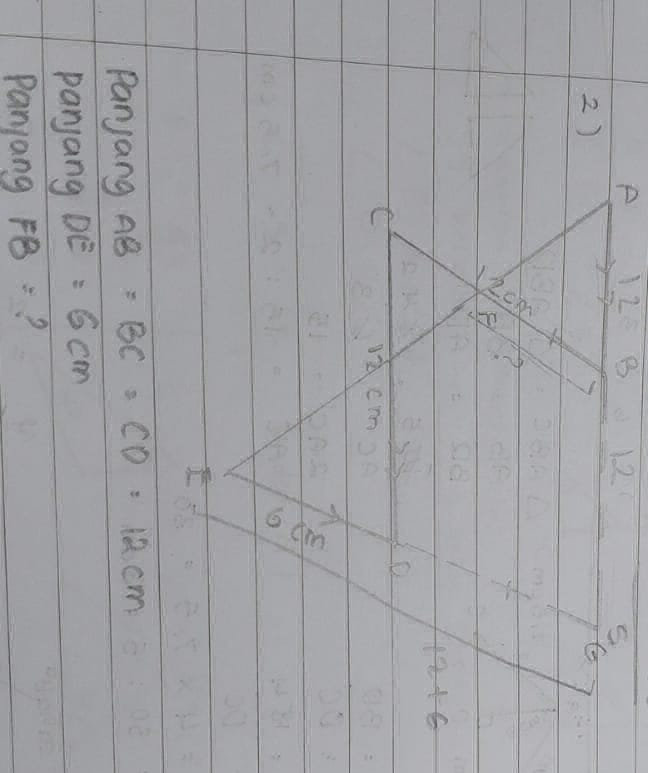 2)
A 12 B 12 S
G
12 cm
F ?
C 12 cm D
12 + 6
6 cm
E
Panjang AB = BC = CD = 12 cm
panjang DE = 6 cm
Panjang FB = ?